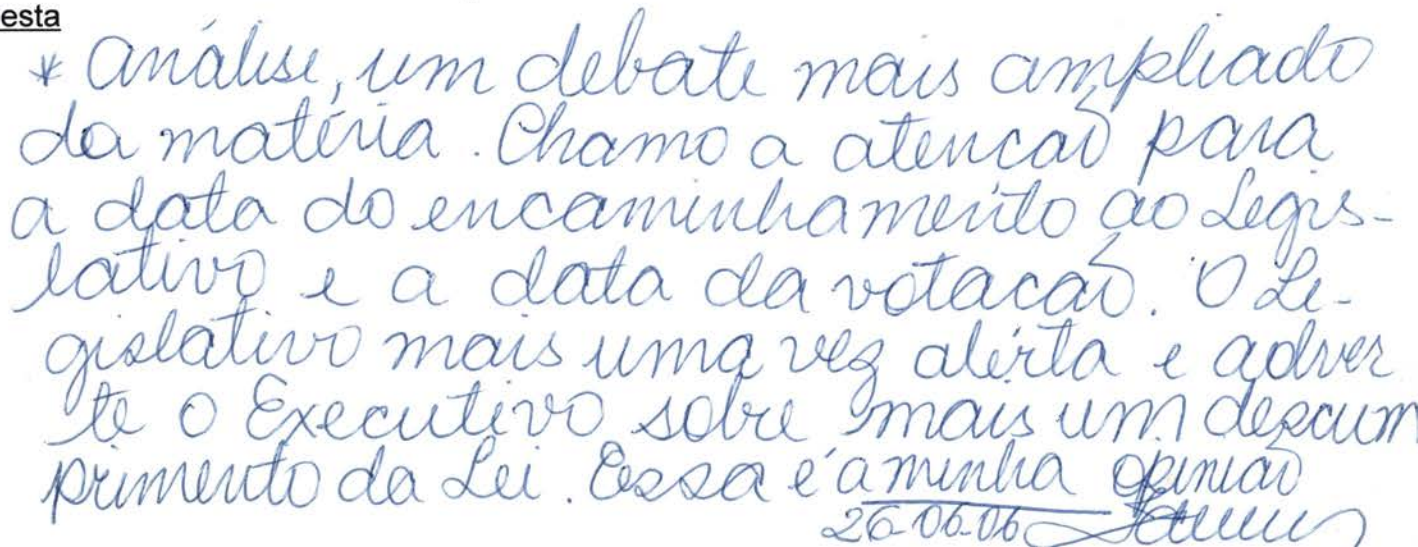 esta
* Análise, um debate mais ampliado
da matéria. Chamo a atencaõ para
a data do encaminhamento ao Legis-
lativo e a data da votacaõ. O Le-
gislativo mais uma vez alerta e adver
te o Executivo sobre mais um descum
primento da Lei. Essa é a minha opiniaõ
26-06-06